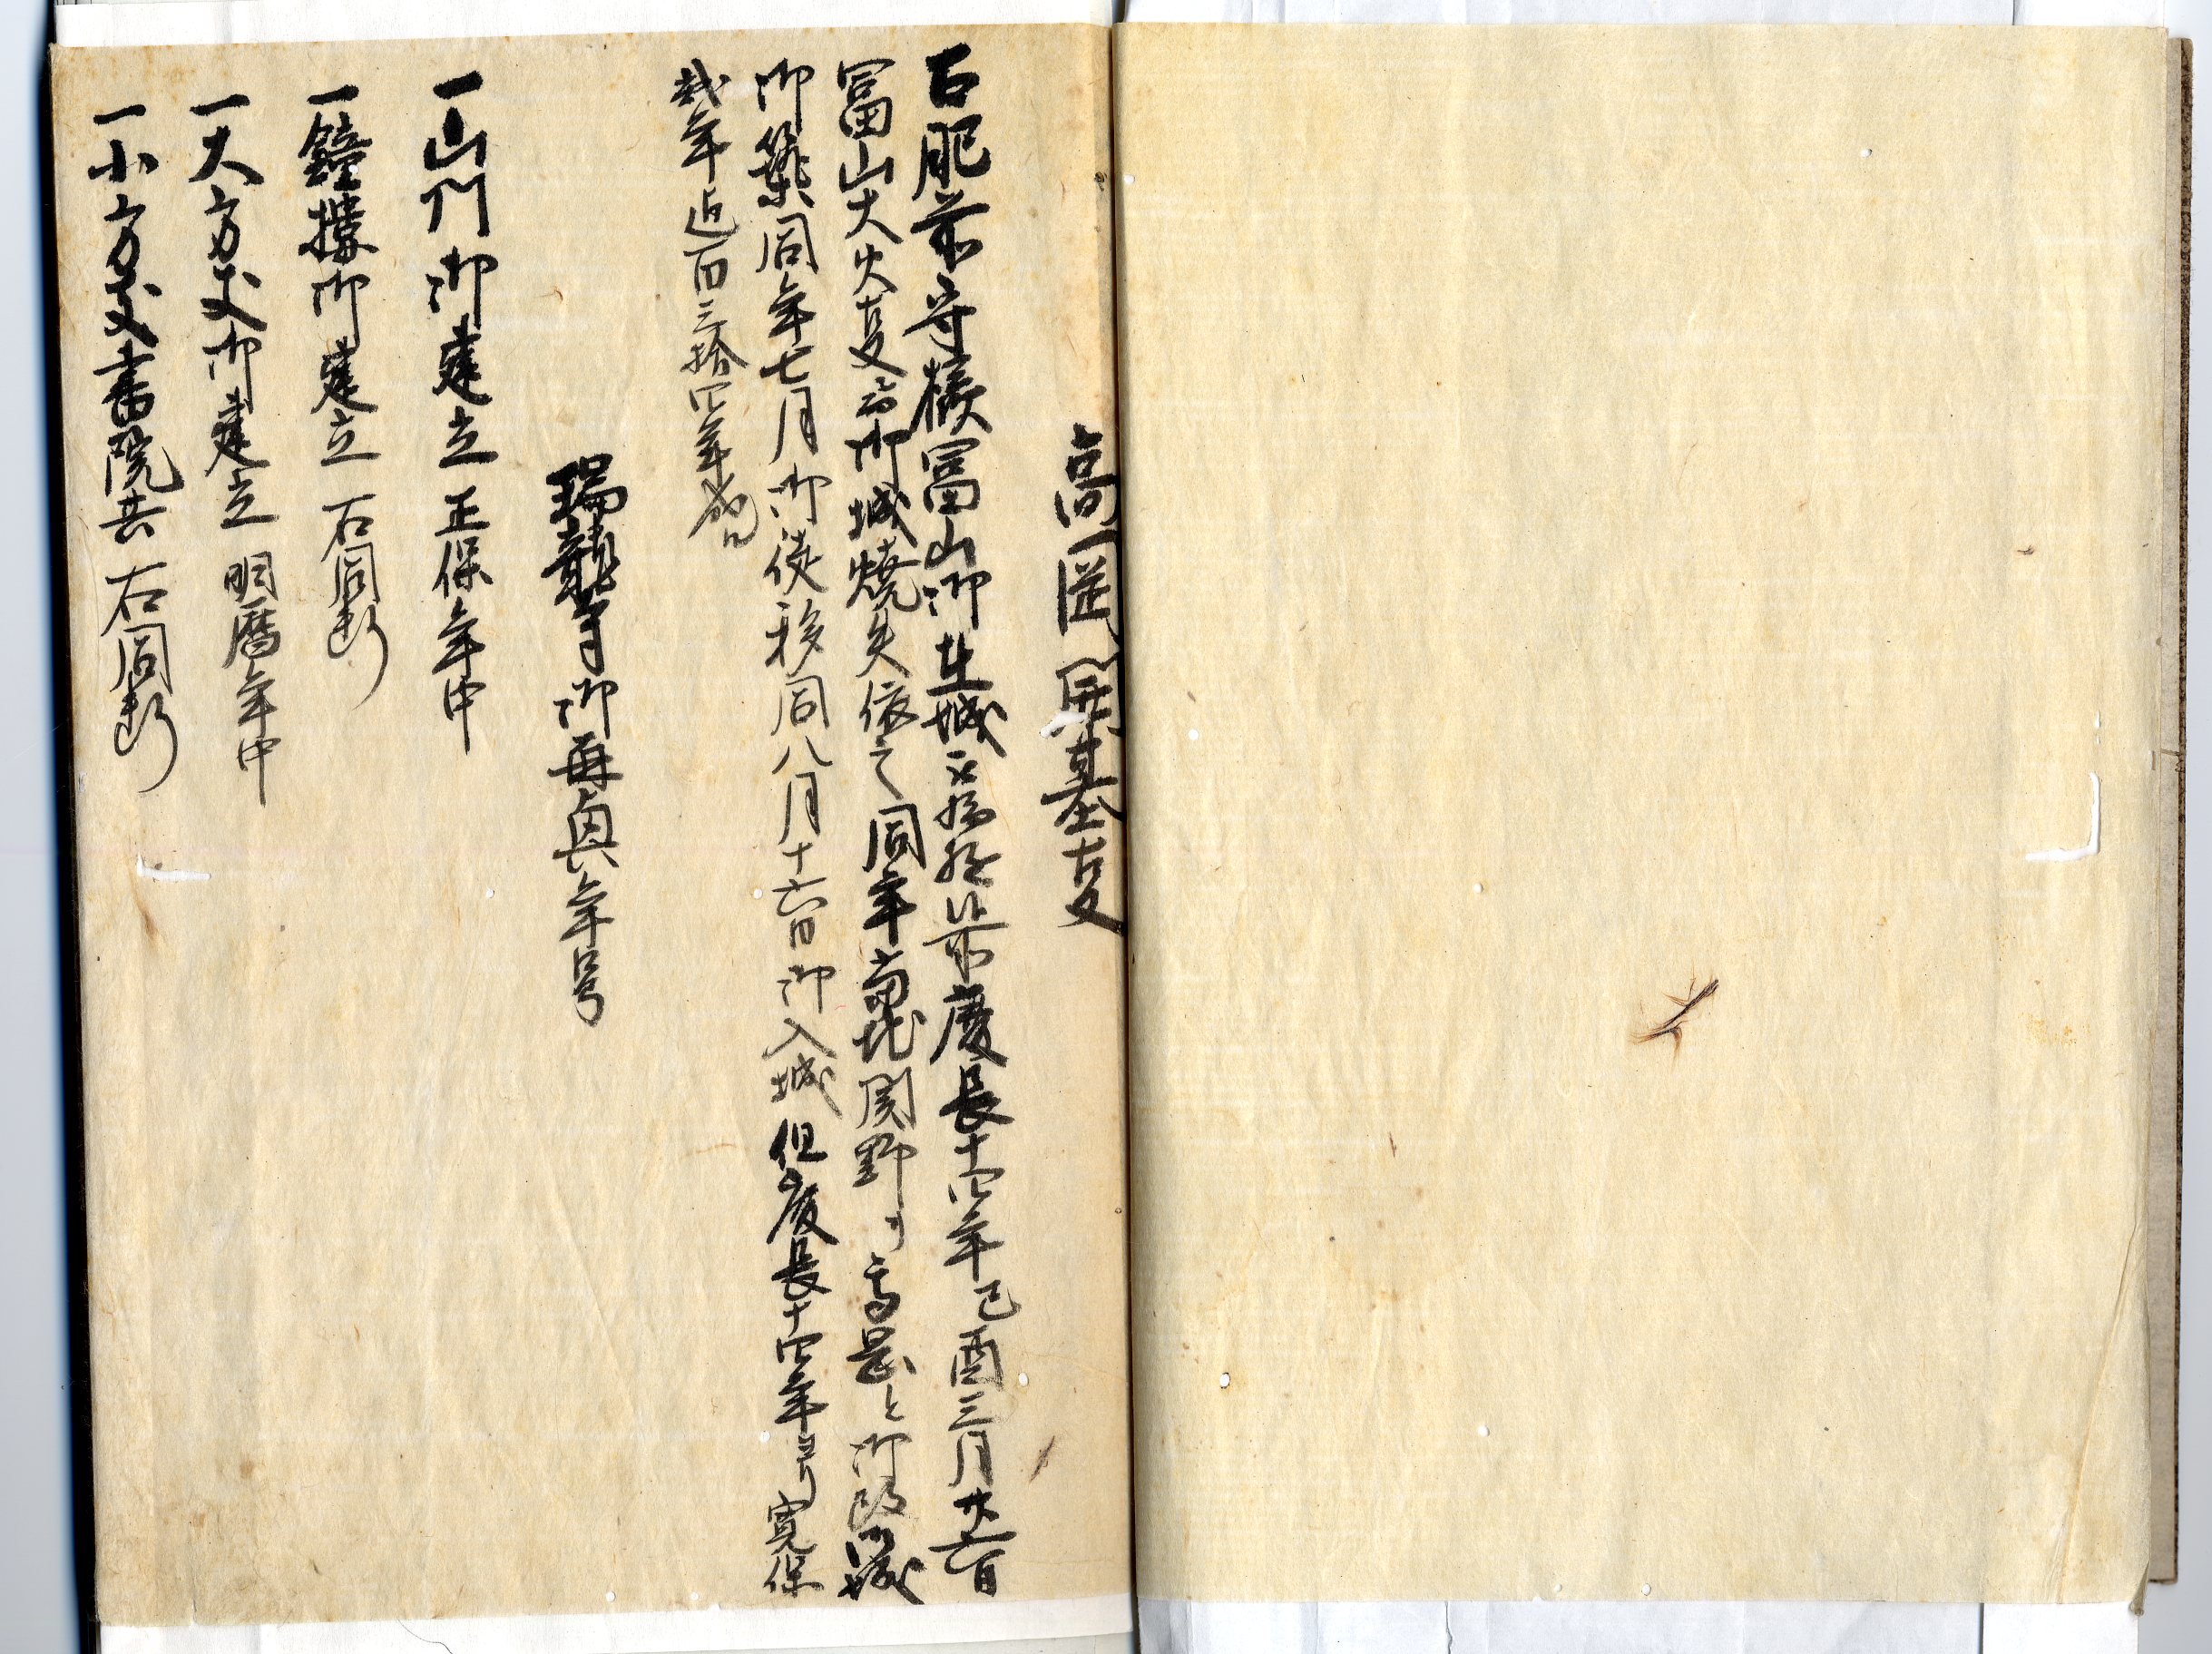 高岡開基㕝
一 肥前守様富山御在城之　慶長十四年己酉三月廿六日
富山大火㕝ニ而御城焼失依之同年当地関野ヲ高岡と御改御城
御築同年七月御徒移同八月十六日御入城但慶長十四年ヨリ寛保
弐年迄百三拾四年成ル
瑞龍寺御再興年号
一山門御建立 正保年中
一鐘撞御建立 右同断
一大方丈御建立 明暦年中
一小方丈書院共 右同断